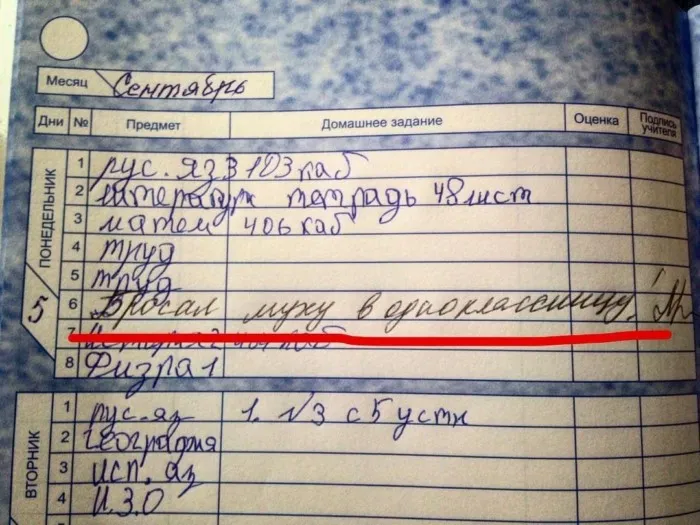 Месяц Сентябрь
Дни № Предмет Домашнее задание Оценка Подпись учителя
ПОНЕДЕЛЬНИК
5
1 рус. яз 3 123 каб
2 литератур тетрадь 48 лист
3 матем 406 каб
4 труд
5 труд
6 Бросал муху в одноклассницу!
7 каб
8 Физра 1
ВТОРНИК
1 рус. яз 1. √3 с 5 устн
2 география
3 исп. яз
4 И.З.О